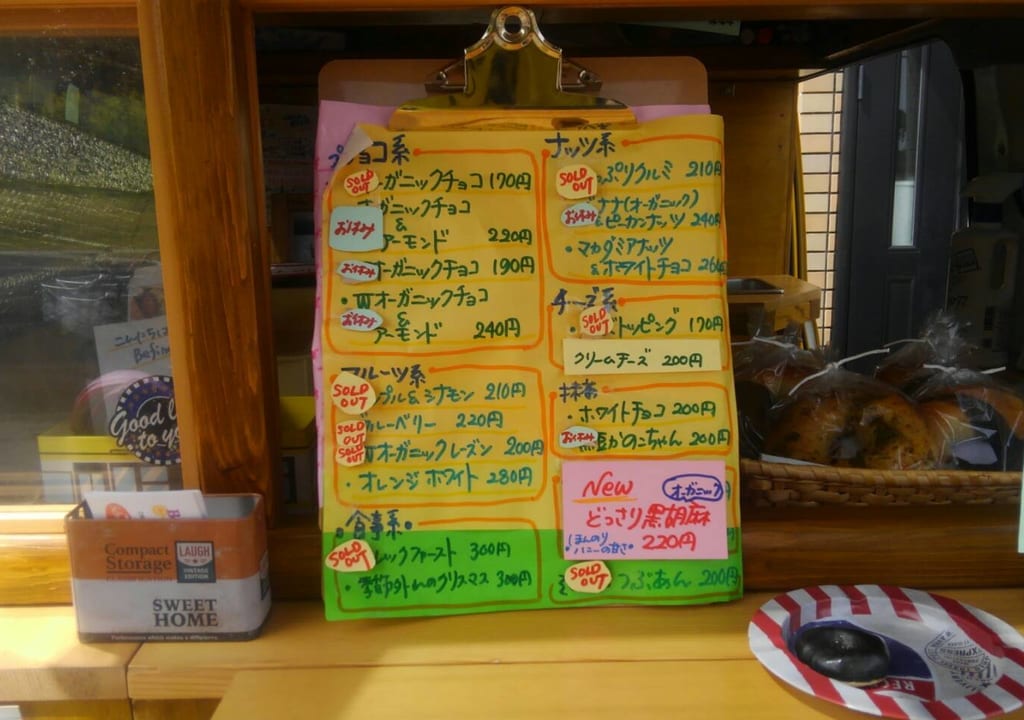 チョコ系
SOLD OUT
オーガニックチョコ 170円
オーガニックチョコ
&
お休み
アーモンド 220円
お休み
オーガニックチョコ 190円
・Wオーガニックチョコ
&
お休み
アーモンド 240円
フルーツ系
SOLD OUT
プル&シナモン 210円
SOLD OUT
ブルーベリー 220円
SOLD OUT
オーガニックレーズン 200円
・オレンジホワイト 280円
・食事系・
SOLD OUT
レックファースト 300円
クリスマス 300円
ナッツ系
SOLD OUT
っぷりクルミ 210円
ナナ(オーガニック)
お休み
&ピーカンナッツ 240円
・マカダミアナッツ
&ホワイトチョコ 260
チーズ系
SOLD OUT
トッピング 170円
クリームチーズ 200円
抹茶
・ホワイトチョコ 200円
お休み
のこちゃん 200円
New
オーガニック
どっさり黒胡麻
ほんのり
ハニーの甘さ
220円
SOLD OUT
つぶあん 200円
Good l
to yo
Compact
Storage
LAUGH
VINTAGE
EDITION
SWEET
HOME